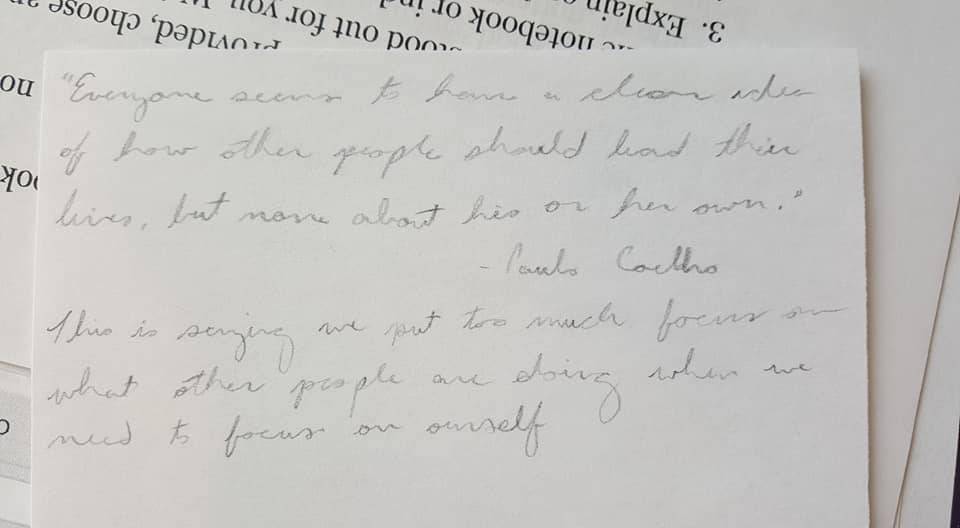 3. Explain
notebook or ind
stood out for you.
provided, choose an
no
ook
"Everyone seems to have a clear idea
of how other people should lead their
lives, but none about his or her own."
- Paulo Coelho
This is saying we put too much focus on
what other people are doing when we
need to focus on ourself